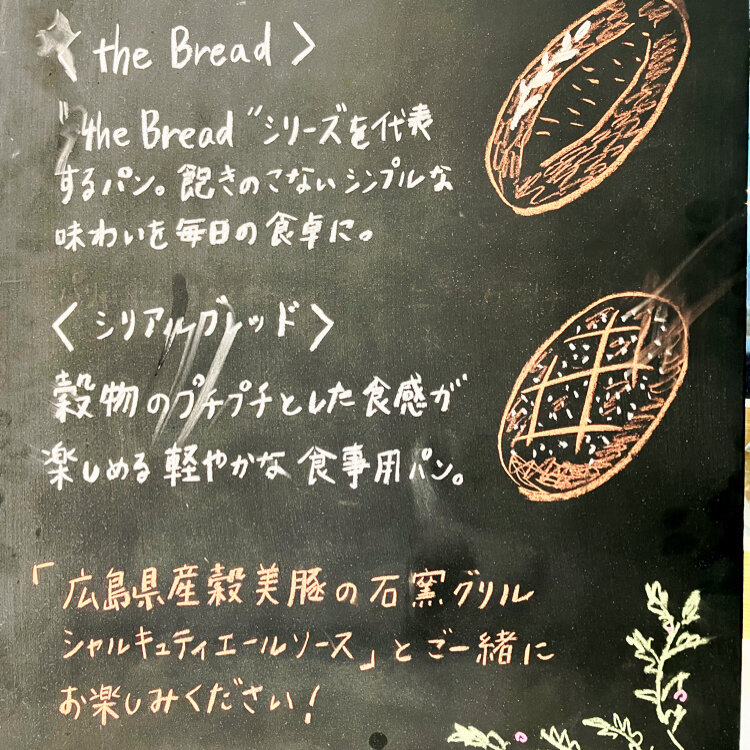 〈 the Bread 〉
"the Bread"シリーズを代表
するパン。飽きのこないシンプルな
味わいを毎日の食卓に。
〈 シリアルブレッド 〉
穀物のプチプチとした食感が
楽しめる軽やかな食事用パン。
「広島県産穀美豚の石窯グリル
シャルキュティエールソース」とご一緒に
お楽しみください!